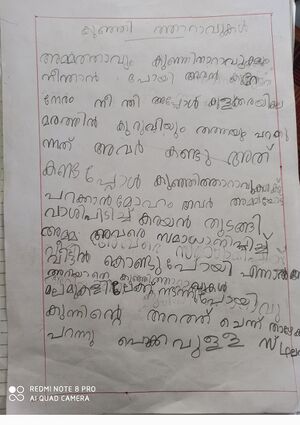 കുഞ്ഞി താറാവുകൾ
അമ്മത്താവും കുഞ്ഞിതാറാവുകളും
നീന്താൻ പോയി അവൻ
നേരം നീന്തി അപ്പോൾ കുളത്തരയിലെ
മരത്തിൽ കുറുവിയും തത്തയും പറക്കു
ന്നത് അവർ കണ്ടു അത്
കണ്ടപ്പോൾ കുഞ്ഞിത്താറാവുകൾക്ക്
പറക്കാൻ മോഹം അവർ അമ്മയോട്
വാശിപിടിച്ച് കരയൻ തുടങ്ങി
അമ്മ അവരെ സമാധാനിപ്പിച്ച്
വീട്ടിൽ കൊണ്ടുപോയി പിന്നാലെ
അറിയാതെ കുഞ്ഞിത്താ
പോയിവു
കുന്നിന്റെ അറത്ത് ചെന്ന് താഴേക്ക്
പറന്നു വുള്ള
REDMI NOTE 8 PRO
AI QUAD CAMERA